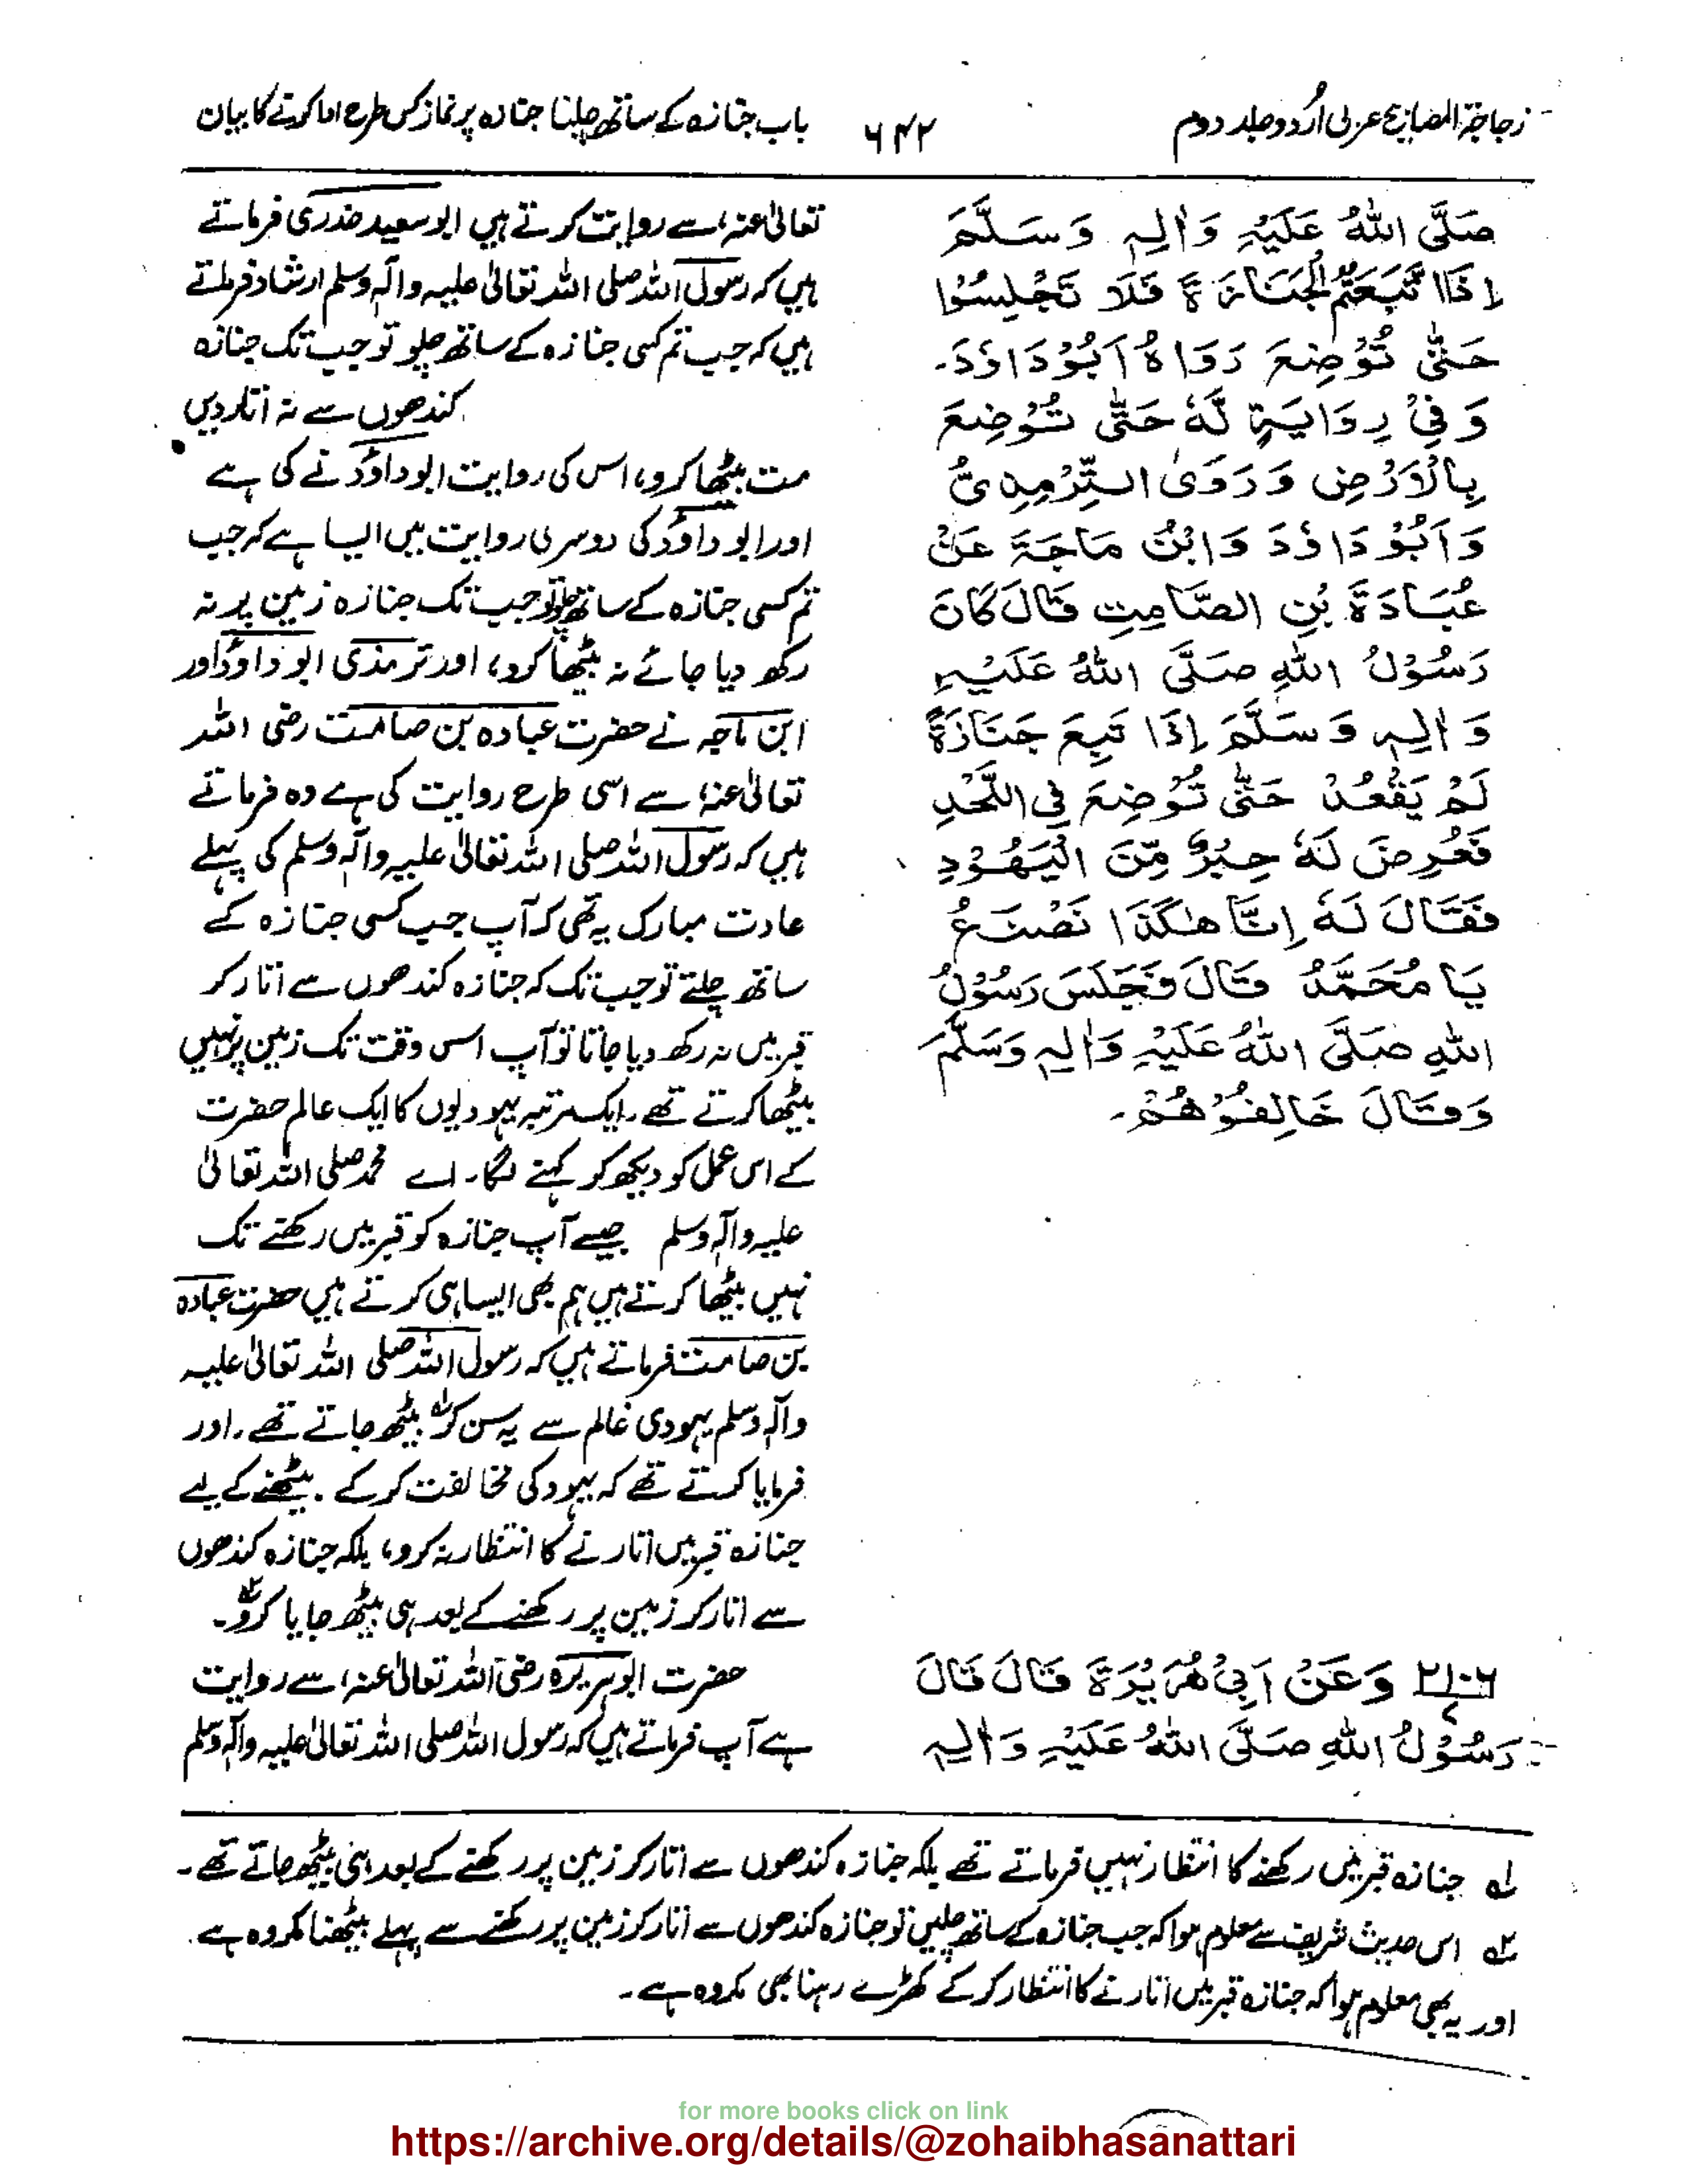 زجاجۃ المصابیح عربی اُردو جلد دوم
۶۴۲
باب جنازہ کے ساتھ چلنا جنازہ پر نماز کس طرح ادا کرنے کا بیان
صَلَّی اللّٰہُ عَلَیْہِ وَاٰلِہٖ وَسَلَّمَ
اِذَا تَبِعْتُمُ الْجَنَازَۃَ فَلَا تَجْلِسُوْا
حَتّٰی تُوْضِعَ رَوَاہُ اَبُوْدَاوٗدَ۔
وَفِیْ رِوَایَۃٍ لَّہٗ حَتّٰی تُوْضِعَ
بِالْاَرْضِ وَرَوَی التِّرْمِذِیُّ
وَاَبُوْدَاوٗدَ وَابْنُ مَاجَۃَ عَنْ
عُبَادَۃَ بْنِ الصَّامِتِ قَالَ کَانَ
رَسُوْلُ اللّٰہِ صَلَّی اللّٰہُ عَلَیْہِ
وَاٰلِہٖ وَسَلَّمَ اِذَا تَبِعَ جَنَازَۃً
لَمْ یَقْعُدْ حَتّٰی تُوْضِعَ فِی اللَّحْدِ
فَعُرِضَ لَہٗ حِبْرٌ مِّنَ الْیَھُوْدِ
فَقَالَ لَہٗ اِنَّا ھٰکَذَا نَصْنَعُ
یَا مُحَمَّدُ قَالَ فَجَلَسَ رَسُوْلُ
اللّٰہِ صَلَّی اللّٰہُ عَلَیْہِ وَاٰلِہٖ وَسَلَّمَ
وَقَالَ خَالِفُوْھُمْ۔
۲۱۰۶ وَعَنْ اَبِیْ ھُرَیْرَۃَ قَالَ قَالَ
رَسُوْلُ اللّٰہِ صَلَّی اللّٰہُ عَلَیْہِ وَاٰلِہٖ
تعالیٰ عنہ، سے روایت کرتے ہیں ابوسعید خدری فرماتے
ہیں کہ رسول اللہ صلی اللہ تعالیٰ علیہ وآلہٖ وسلم ارشاد فرماتے
ہیں کہ جب تم کسی جنازہ کے ساتھ چلو تو جب تک جنازہ
کندھوں سے نہ اتار دیں
مت بیٹھا کرو، اس کی روایت ابوداؤد نے کی ہے
اور ابو داؤد کی دوسری روایت میں ایسا ہے کہ جب
تم کسی جنازہ کے ساتھ چلو تو جب تک جنازہ زمین پر نہ
رکھ دیا جائے نہ بیٹھا کرو، اور ترمذی ابو داؤد اور
ابن ماجہ نے حضرت عبادہ بن صامت رضی اللہ
تعالیٰ عنہ، سے اسی طرح روایت کی ہے وہ فرماتے
ہیں کہ رسول اللہ صلی اللہ تعالیٰ علیہ وآلہٖ وسلم کی پہلے
عادت مبارک یہ تھی کہ آپ جب کسی جنازہ کے
ساتھ چلتے تو جب تک کہ جنازہ کندھوں سے اتار کر
قبر میں نہ رکھ دیا جاتا تو آپ اس وقت تک زمین پر نہیں
بیٹھا کرتے تھے۔ ایک مرتبہ یہودیوں کا ایک عالم حضرت
کے اس عمل کو دیکھ کر کہنے لگا۔ اے محمد صلی اللہ تعالیٰ
علیہ وآلہٖ وسلم جیسے آپ جنازہ کو قبر میں رکھتے تک
نہیں بیٹھا کرتے ہیں ہم بھی ایسا ہی کرتے ہیں حضرت عبادہ
بن صامت فرماتے ہیں کہ رسول اللہ صلی اللہ تعالیٰ علیہ
وآلہٖ وسلم یہودی عالم سے یہ سن کر؂۱ بیٹھ جاتے تھے۔ اور
فرمایا کرتے تھے کہ یہود کی مخالفت کر کے۔ بیٹھنے کے لیے
جنازہ قبر میں اتارنے کا انتظار نہ کرو، بلکہ جنازہ کندھوں
سے اتار کر زمین پر رکھنے کے بعد ہی بیٹھ جایا کرو؂۲۔
حضرت ابوہریرہ رضی اللہ تعالیٰ عنہ، سے روایت
ہے آپ فرماتے ہیں کہ رسول اللہ صلی اللہ تعالیٰ علیہ وآلہٖ وسلم
۱؎ جنازہ قبر میں رکھنے کا انتظار نہیں فرماتے تھے بلکہ جنازہ کندھوں سے اتار کر زمین پر رکھتے کے بعد ہی بیٹھ جاتے تھے۔
۲؎ اس حدیث شریف سے معلوم ہوا کہ جب جنازہ کے ساتھ چلیں تو جنازہ کندھوں سے اتار کر زمین پر رکھتے سے پہلے بیٹھنا مکروہ ہے۔
اور یہ بھی معلوم ہوا کہ جنازہ قبر میں اتارنے کا انتظار کر کے کھڑے رہنا بھی مکروہ ہے۔
for more books click on link
https://archive.org/details/@zohaibhasanattari